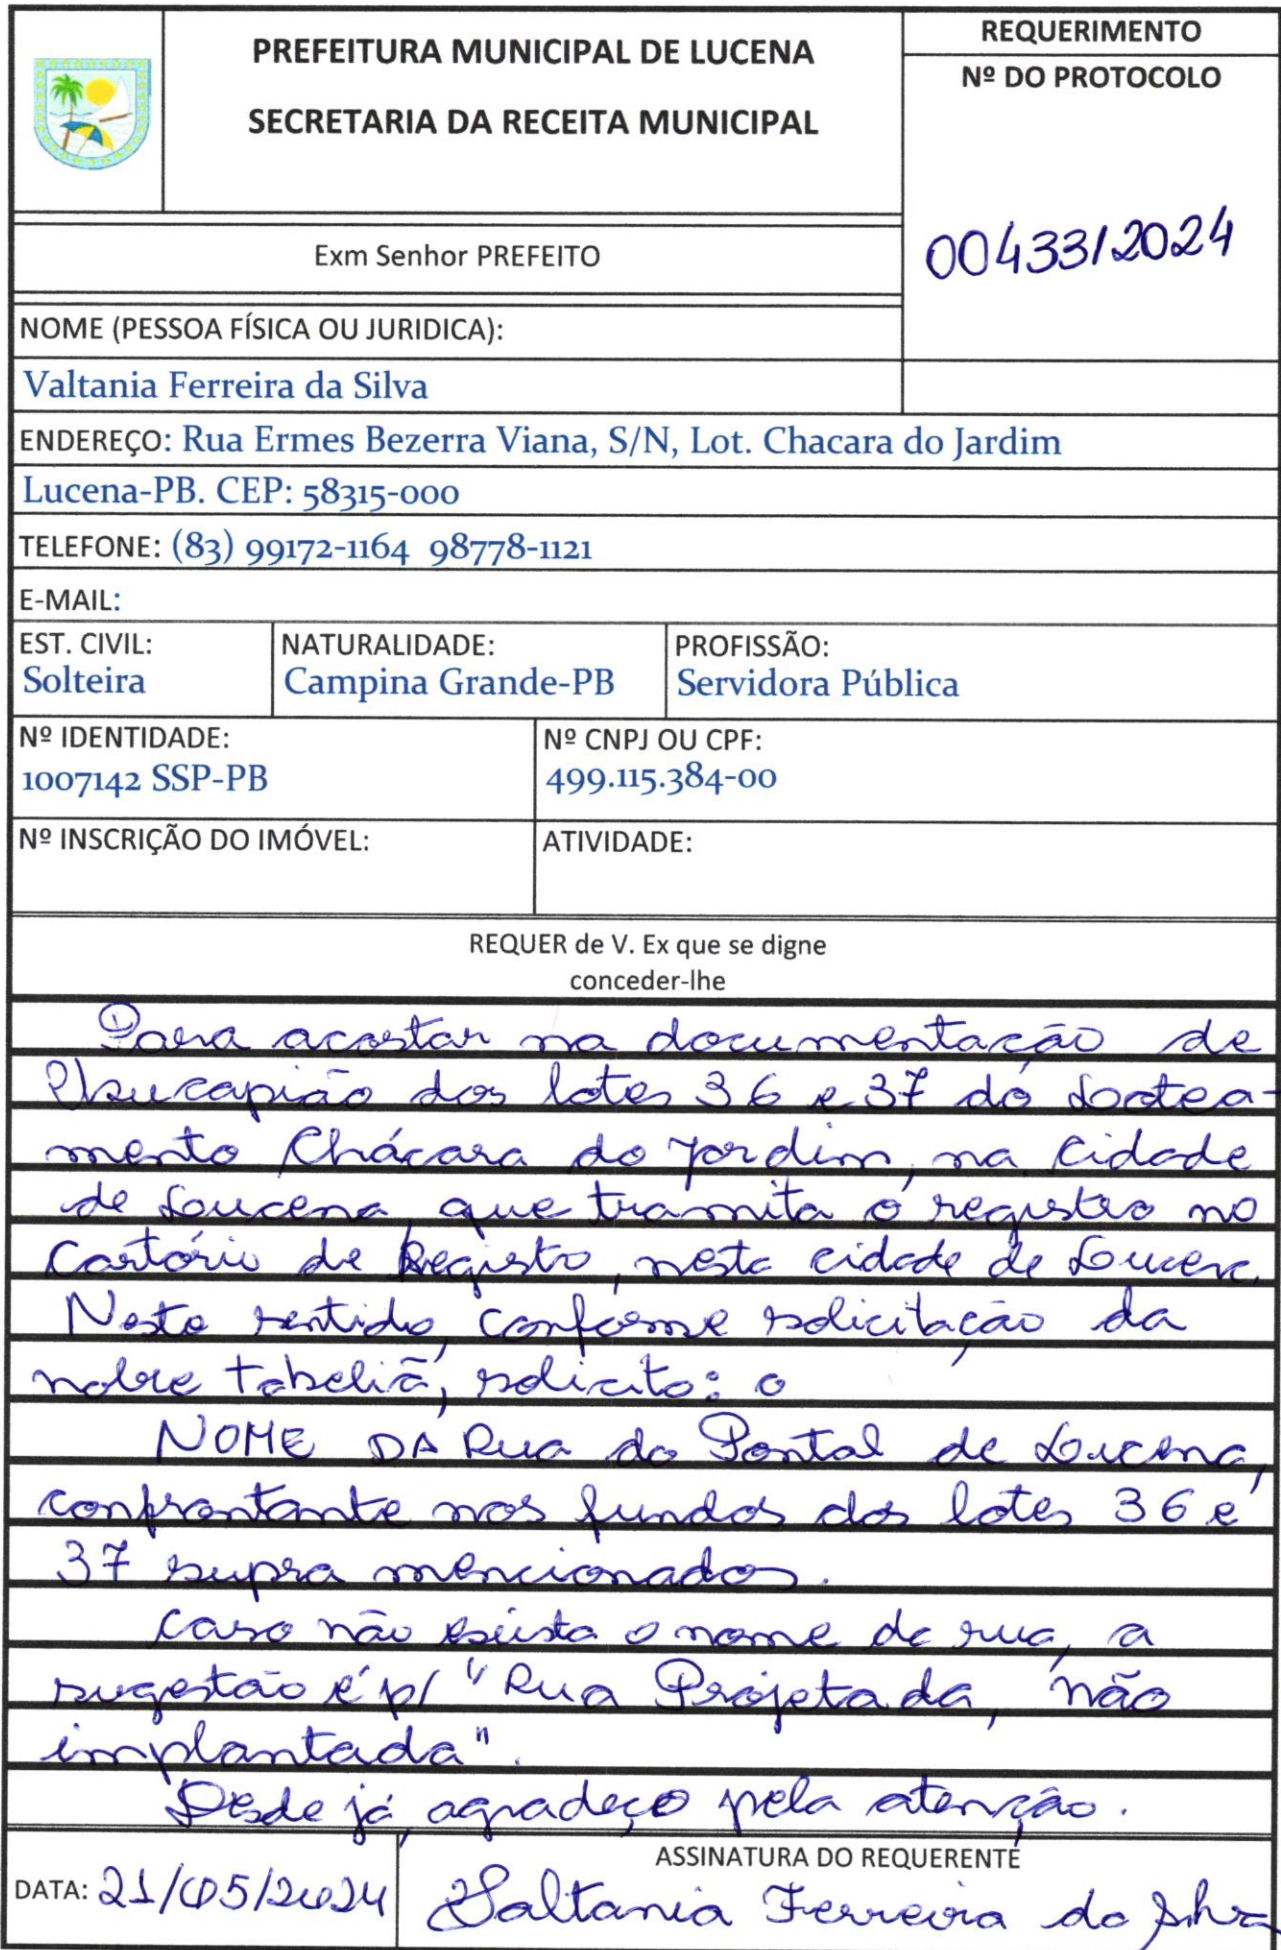 PREFEITURA MUNICIPAL DE LUCENA
SECRETARIA DA RECEITA MUNICIPAL
REQUERIMENTO
Nº DO PROTOCOLO
00433/2024
Exm Senhor PREFEITO
NOME (PESSOA FÍSICA OU JURIDICA):
Valtania Ferreira da Silva
ENDEREÇO: Rua Ermes Bezerra Viana, S/N, Lot. Chacara do Jardim
Lucena-PB. CEP: 58315-000
TELEFONE: (83) 99172-1164 98778-1121
E-MAIL:
EST. CIVIL:
Solteira
NATURALIDADE:
Campina Grande-PB
PROFISSÃO:
Servidora Pública
Nº IDENTIDADE:
1007142 SSP-PB
Nº CNPJ OU CPF:
499.115.384-00
Nº INSCRIÇÃO DO IMÓVEL:
ATIVIDADE:
REQUER de V. Ex que se digne
conceder-lhe
Para acostar na documentação de
Usucapião dos lotes 36 e 37 do Lotea-
mento Chácara do Jardim, na Cidade
de Lucena, que tramita o registro no
Cartório de Registro, nesta cidade de Lucena.
Neste sentido, conforme solicitação da
nobre tabeliã, solicito: o
NOME DA Rua do Pontal de Lucena,
confrontante nos fundos dos lotes 36 e
37 supra mencionados.
Caso não exista o nome da rua, a
sugestão é p/ "Rua Projetada, não
implantada".
Desde já, agradeço pela atenção.
DATA: 21/05/2024
ASSINATURA DO REQUERENTE
Valtania Ferreira da Silva